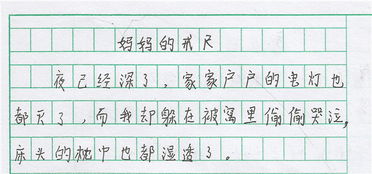 妈妈的戒尺
夜已经深了，家家户户的虫灯也
都灭了，而我却躲在被窝里偷偷哭泣，
床头的枕巾也都湿透了。